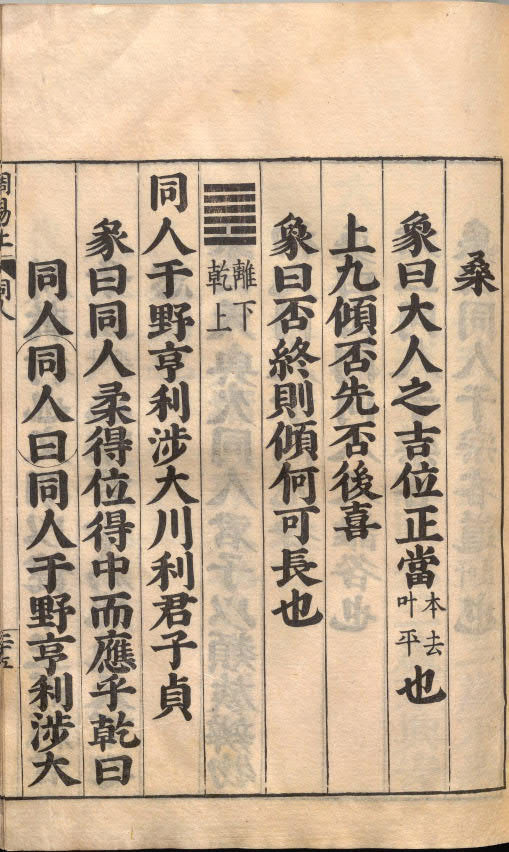 桑
象曰大人之吉位正當本去叶平也
上九傾否先否後喜
象曰否終則傾何可長也
䷌離下乾上
同人于野亨利涉大川利君子貞
彖曰同人柔得位得中而應乎乾曰
同人同人曰同人于野亨利涉大
周易上 同人